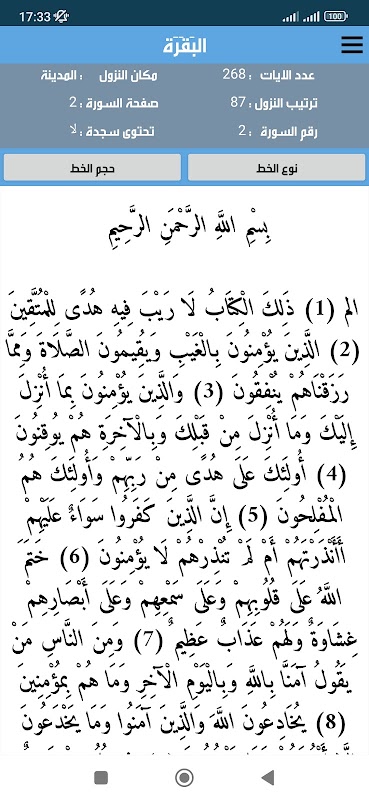 17:33
100
البقرة
عدد الايات : 268
مكان النزول : المدينة
ترتيب النزول : 87
صفحة السورة : 2
رقم السورة : 2
تحتوى سجدة : لا
نوع الخط
حجم الخط
بِسْمِ اللَّهِ الرَّحْمَنِ الرَّحِيمِ
الم (1) ذَلِكَ الْكِتَابُ لَا رَيْبَ فِيهِ هُدًى لِلْمُتَّقِينَ
(2) الَّذِينَ يُؤْمِنُونَ بِالْغَيْبِ وَيُقِيمُونَ الصَّلَاةَ وَمِمَّا
رَزَقْنَاهُمْ يُنْفِقُونَ (3) وَالَّذِينَ يُؤْمِنُونَ بِمَا أُنْزِلَ
إِلَيْكَ وَمَا أُنْزِلَ مِنْ قَبْلِكَ وَبِالْآخِرَةِ هُمْ يُوقِنُونَ
(4) أُولَئِكَ عَلَى هُدًى مِنْ رَبِّهِمْ وَأُولَئِكَ هُمُ
الْمُفْلِحُونَ (5) إِنَّ الَّذِينَ كَفَرُوا سَوَاءٌ عَلَيْهِمْ
أَأَنْذَرْتَهُمْ أَمْ لَمْ تُنْذِرْهُمْ لَا يُؤْمِنُونَ (6) خَتَمَ
اللَّهُ عَلَى قُلُوبِهِمْ وَعَلَى سَمْعِهِمْ وَعَلَى أَبْصَارِهِمْ
غِشَاوَةٌ وَلَهُمْ عَذَابٌ عَظِيمٌ (7) وَمِنَ النَّاسِ مَنْ
يَقُولُ آمَنَّا بِاللَّهِ وَبِالْيَوْمِ الْآخِرِ وَمَا هُمْ بِمُؤْمِنِينَ
(8) يُخَادِعُونَ اللَّهَ وَالَّذِينَ آمَنُوا وَمَا يَخْدَعُونَ